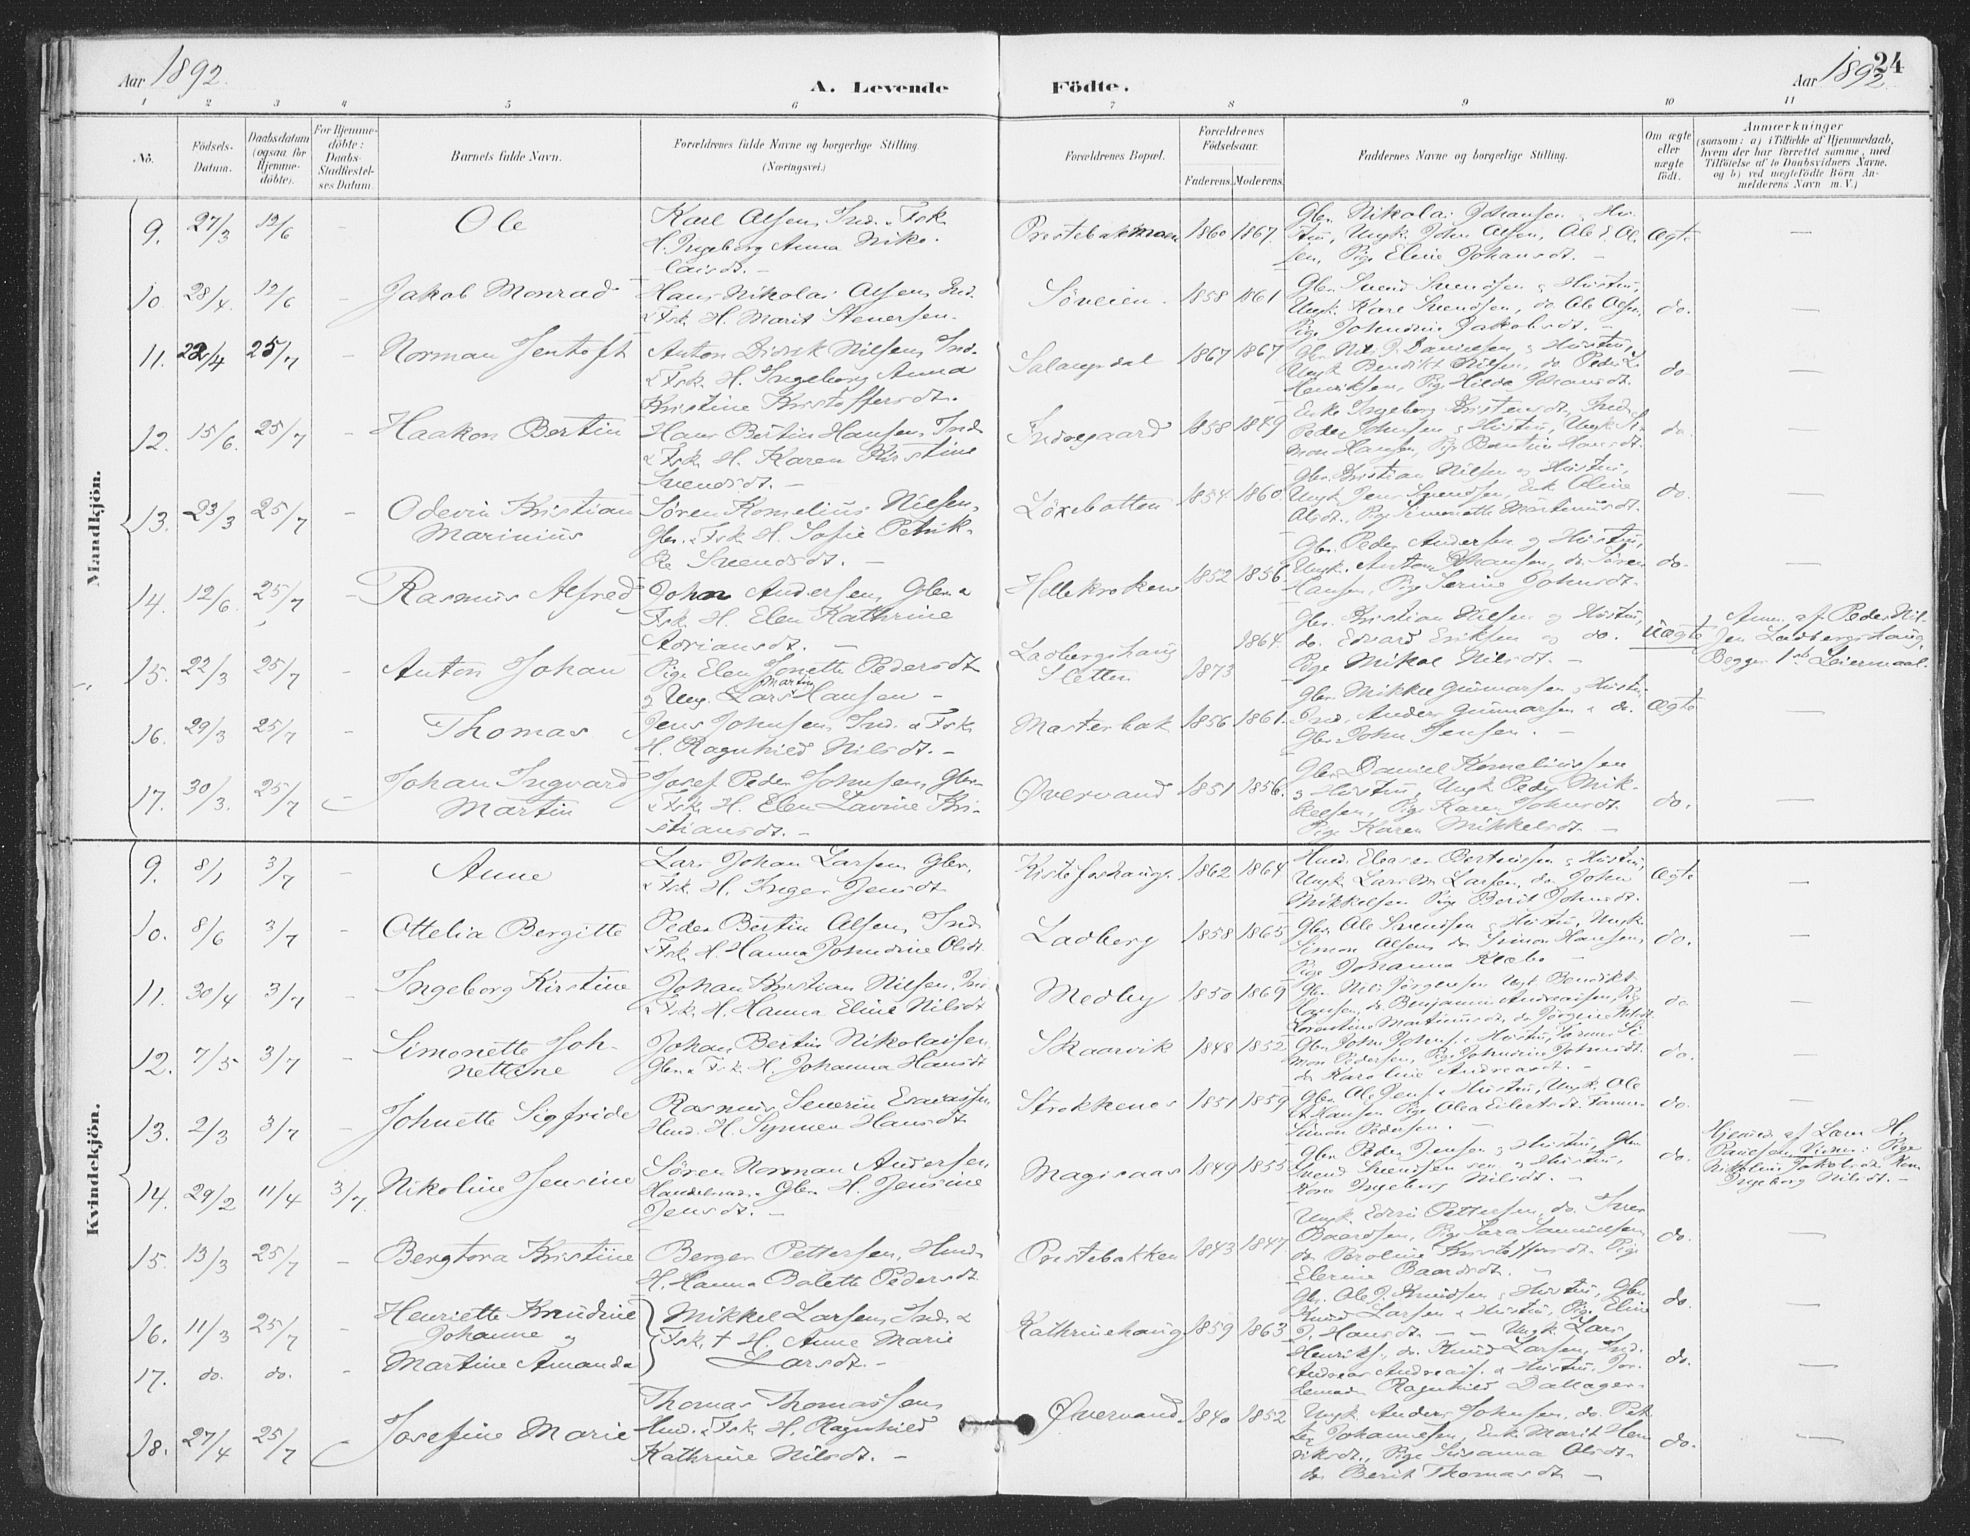 Aar 1892.
A. Levende Födte.
Aar 1892
24
1 2 3 4 5 6 7 8 9 10 11
No.
Födsels-Datum.
Daabsdatum (ogsaa for Hjemme-döbte).
For Hjemme-döbte: Daabs-Stadfæstel-ses Datum.
Barnets fulde Navn.
Forældrenes fulde Navne og borgerlige Stilling.
(Næringsvei.)
Forældrenes Bopæl.
Forældrenes Födselsaar.
Faderens. Moderens.
Faddernes Navne og borgerlige Stilling.
Om ægte eller uægte födt.
Anmærkninger
(saasom: a) i Tilfælde af Hjemmedaab, hvem der har forrettet samme, med Tilföielse af to Daabsvidners Navne, og b) ved uægtefödte Börn An-melderens Navn m. V.)
Mandkjön.
9. 27/3 12/6 - Ole
Karl Olsen, Ind. & Fsk.
H. Ingeborg Anna Niko-
laisdt. -
Prestebakmoen 1860 1867.
Gbr. Nikolai Johansen & Hu-
stru, Ungk. John Olsen, Ole E. Ol-
sen, Pige Eline Johansdt. -
Ægte —
10. 28/4. 12/6 - Jakob Monrad
Hans Nikolai Olsen, Ind.
& Fsk. H. Marit Stenersen.
Söveien. 1858 1861
Gbr. Svend Svendsen & Hustru,
Ungk. Kare Svendsen, do Ole Olsen,
Pige Johndine Jakobsdt. -
do. —
11. 22/4 25/7 - Norman Jentoft
Anton Didrik Nilsen, Ind.
& Fsk. H. Ingeborg Anna
Kristine Kristoffersdt.
Salangsdal 1867 1867
Gbr. Nils P. Danielsen & Hustru,
Ungk. Bendikt Nilsen, do Peder L.
Henriksen, Pige Hilda Johansdt.
do —
12. 15/6. 25/7 - Haakon Bertin
Hans Bertin Hansen, Ind.
& Fsk. H. Karen Kirstine
Svendsdt. -
Indregaard 1858 1849
Enke Ingeborg Kristensdt, Ind.
Peder Johnsen & Hustru, Ungk. Si-
mon Hansen, Pige Berntine Hansdt.
do. —
13. 23/3 25/7 - Odevin Kristian
Marinius
Sören Kornelius Nilsen,
Gbr. & Fsk. H. Sofie Petrik-
ke Svendsdt. -
Löxebotten 1854 1860
Gbr. Kristian Nilsen og Hustru,
Ungk. Jens Svendsen, Enk. Oline
Olsdt., Pige Simonette Martinusdt.
do. —
14. 12/6. 25/7 - Rasmus Alfred
Johan Andersen, Gbr. &
Fsk. H. Elen Kathrine
Adriansdt. -
Hellekroken 1852 1856.
Gbr. Peder Andersen og Hustru,
Ungk. Anton Johansen, do Sören
Hansen, Pige Serine Johnsdt.
do. —
15. 22/3 25/7 - Anton Johan
Pige Elen Jonette Pedersdt
& Ung. Lars Martin Hansen -
Ladbergshaug
Sletten 1873 1864.
Gbr. Kristian Nilsen og Hustru,
do. Edvard Eriksen og do.
Pige Mikal Nilsdt. -
uægte
Anm. af Peder Nil-
sen Ladbergshaug,
Begges 1ste Leiermaal.
16. 29/3 25/7 - Thomas
Jens Johnsen, Ind. & Fsk.
H. Ragnhild Nilsdt. -
Masterbak 1856 1861.
Gbr. Mikkel Gunnarsen & Hustru,
Ind. Anders Gunnarsen & do.
Gbr. John Jensen. -
Ægte —
17. 30/3. 25/7 Johan Ingvard
Martin
Josef Peder Johnsen, Gbr.
& Fsk. H. Elen Lavine Kri-
stiansdt. -
Övervand 1851 1856.
Gbr. Daniel Kornelinssen
& Hustru, Ungk. Peder Mik-
kelsen, Pige Karen Johnsdt.
Pige Karen Mikkelsdt. -
do. —
Kvindekjön.
9. 8/1 3/7 - Anne
Lars Johan Larsen, Gbr.
& Fsk. H. Inger Jensdt
Kistefoshaug. 1862 1864
Hmd. Eleaser Berthinssen & Hustru,
Ungk. Lars M. Larsen, do John
Mikkelsen Pige Berit Johnsdt.
Ægte —
10. 8/6 3/7 - Ottelia Bergitte
Peder Bertin Olsen, Ind
& Fsk. H. Hanna Johndine Olsdt
Ladberg 1858 1865
Gbr. Ole Svendsen & Hustru, Ungk
Simon Olsen, do Simon Hansen,
Pige Johanna Klebo -
do. —
11. 30/4 3/7 - Ingeborg Kirstine
Johan Kristian Nilsen, Ind
& Fsk. H. Hanna Eline Nilsdt
Medby 1850 1869
Gbr. Nils Jörgensen Ungk. Bendikt
Hansen, do Benjamin Andreassen, Pig
Lorentine Martinusdt, do Jörgine Nilsdt.
do —
12. 7/5 3/7 - Simonette Joh-
nettine
Johan Bertin Nikolaisen,
Gbr. & Fsk. H. Johanna Hansdt
Skaarvik 1848 1852
Gbr. John Johns. & Hustru, Farm. Si-
mon Pedersen, Pige Johndine Johnsdt.
do Karoline Andreasdt. -
do. —
13. 2/3 3/7 - Johnette Sigfride
Rasmus Severin Esaiassen,
Hmd. H. Synnev Hansdt
Strokkenes 1851 1859
Gbr. Ole Jens. & Hustru, Ungk. Ole
Hansen Pige Olea Eilertsdt. Farm.
Simon Pedersen. -
do. —
14. 29/2 11/4 3/7. Nikoline Jensine
Sören Norman Andersen,
Handelsmd. & Gbr. H. Jensine
Jensdt. -
Magisaas 1849 1855
Gbr. Peder Jensen & Hustru, Gbr.
Svend Svendsen sen. & Hustru,
Kone Ingeborg Nilsdt. -
do.
Hjemmed. af Lars H.
Vidner: Pige
Nikoline Jakobsdt, Kone
Ingeborg Nilsdt. -
15. 13/3 25/7 - Bergtora Kristine
Berger Pettersen, Hmd.
H. Hanna Bolette Pedersdt
Prestebakken 1843 1847.
Ungk. Edvin Pettersen, do. Iver
Baardsen, Pige Sara Samuelsen,
do Peroline Kristoffersdt. Pige
Elerine Baardsdt. -
do. —
16. 11/3 25/7 - Henriette Knudine
Johanne og
17. do. do. - Martine Amanda
Mikkel Larsen, Ind. &
Fsk. † H. Anne Marie
Larsdt. -
Kathrinehaug 1859 1863
Gbr. Ole J. Knudsen & Hustru, Gbr.
Knud Larsen & Hustru, Pige Eline
J. Hansdt. - - Ungk. Lars
Henriks., do. Knud Larsen, Ind.
Andreas Andreass. & Hustru, Jor-
demoder Ragnhild Dallager.
do. —
do. —
18. 27/4 25/7 Josefine Marie
Thomas Thomassen,
Hmd. & Fsk. H. Ragnhild
Kathrine Nilsdt. -
Övervand. 1840 1852
Ungk. Anders Johnsen, do. Pet-
ter Johannesen, Enk. Marit Hen-
riksdt., Pige Susanna Olsdt.
do Berit Thomasdt -
do. —